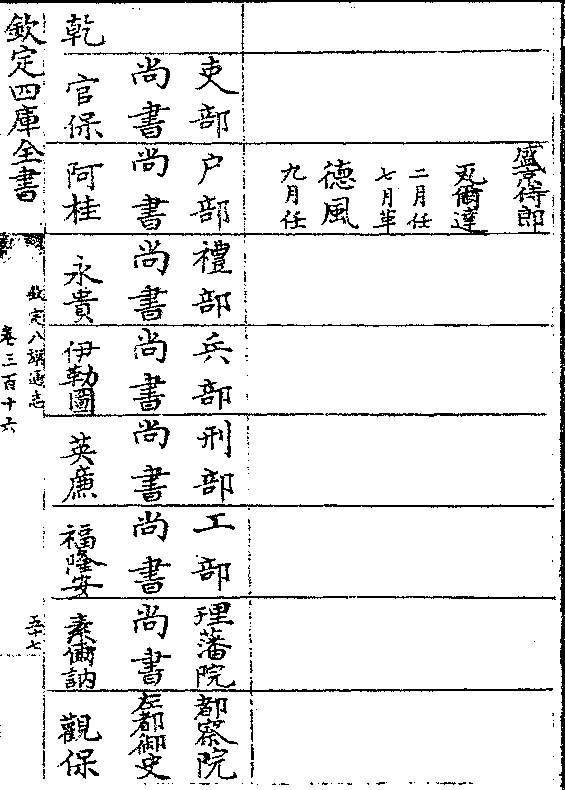 盛京侍郎
瓦爾達
二月任
七月革
德風
九月任
吏部 户部 禮部 兵部 刑部 工部 理藩院 都察院
尚書 尚書 尚書 尚書 尚書 尚書 尚書 左都御史
乾 官保 阿桂 永貴 伊勒圖 英廉 福隆安 素爾訥 觀保
欽定四庫全書
欽定八旗通志
卷三百十六
五十七